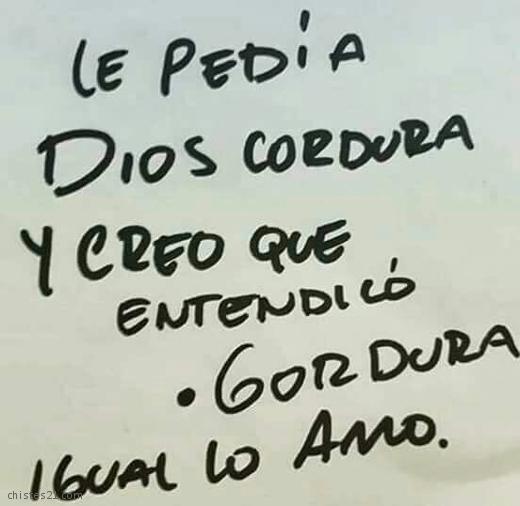 LE PEDÍA
DIOS CORDURA
Y CREO QUE
ENTENDICÓ
• GORDURA
IGUAL LO AMO.
chistes21.com